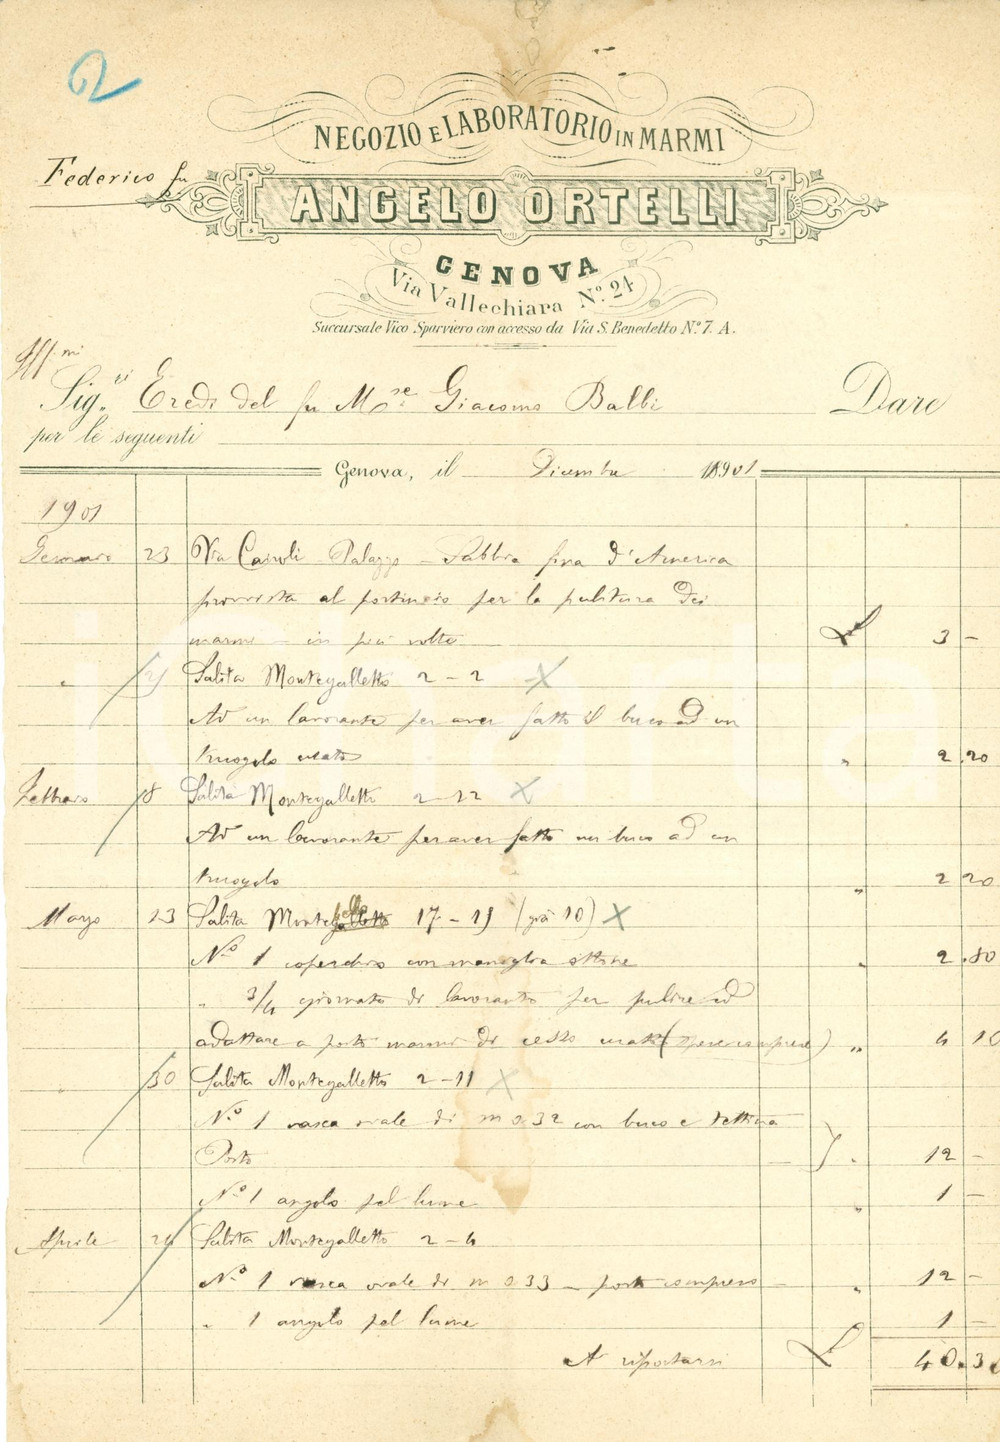 2
NEGOZIO E LABORATORIO IN MARMI
Federico fu
ANGELO ORTELLI
GENOVA
Via Vallechiara N.º 24
Succursale Vico Sparviero con accesso da Via S. Benedetto N.º 7. A.
Ill.mi
Sig.ri Eredi del fu M.se Giacomo Balbi Dare
per le seguenti
Genova, il Dicembre 1901
1901
Gennaro 23 Via Cairoli Palazzo - Sabbia fina d'America
provvista al portinaio per la pulitura dei
marmi - in più volte £ 3 -
" Salita Montegalletto 2 - 2 X
Ad un lavorante per aver fatto il buco ad un
truogolo usato " 2.20
Febbraio 8 Salita Montegalletto 2-22 X
Ad un lavorante per aver fatto un buco ad un
truogolo " 2 20
Marzo 13 Salita Montebello 17 - 19 (già 10) X
N.º 1 coperchio con maniglia ottone " 2.80
" 3/4 giornata di lavorante per pulire ed
adattare a posto marmi di cesso usati (spese comprese) " 4 10
" 30 Salita Montegalletto 2 - 11 X
N.º 1 vasca ovale di m 0.32 con buco e
Posto " 12 -
N.º 1 angolo pel lume " 1 -
Aprile 24 Salita Montegalletto 2 - 4
N.º 1 vasca ovale di m 0.33 - posto compreso - " 12 -
" 1 angolo pel lume 1 -
A riportarsi £ 40.30